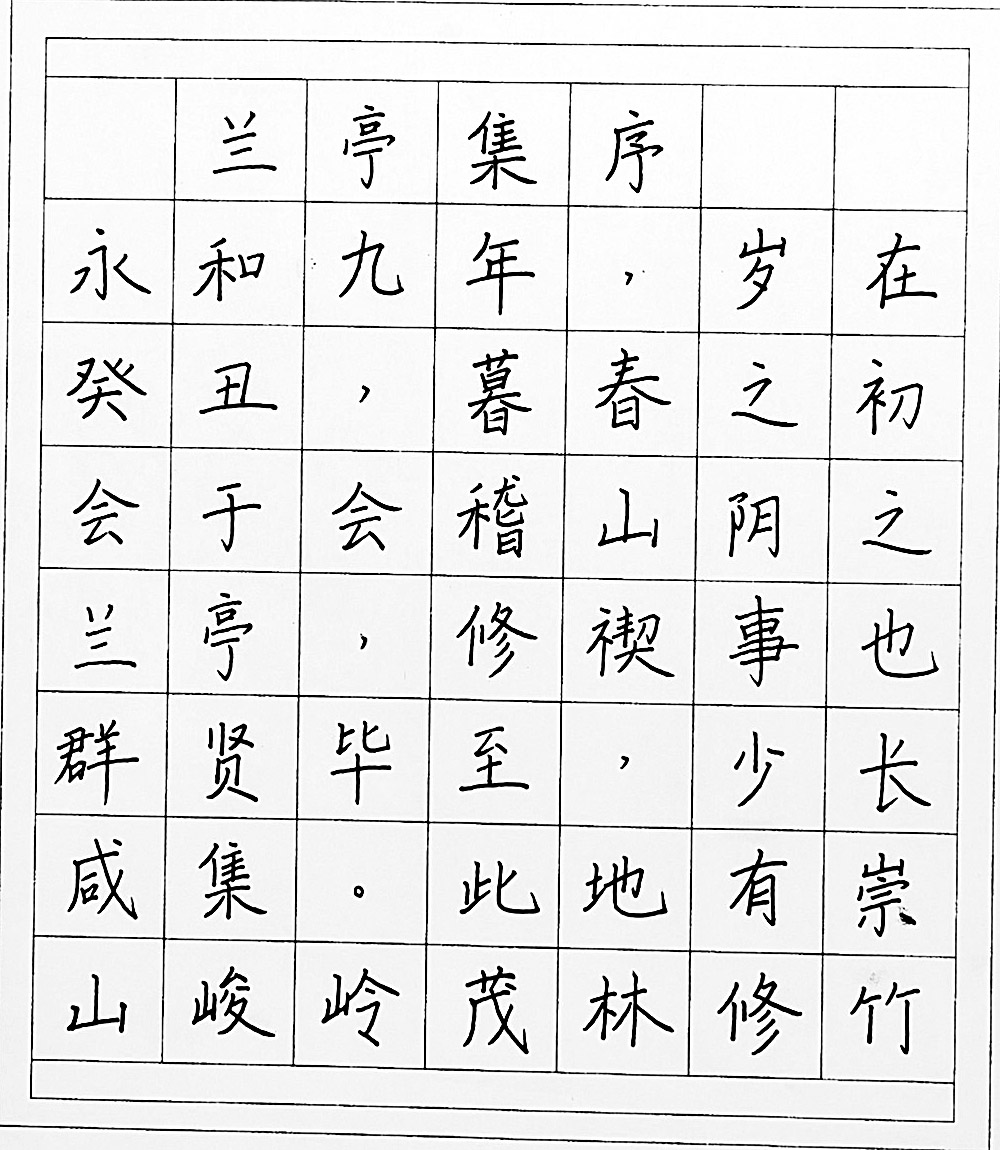 兰亭集序
永和九年，岁在
癸丑，暮春之初
会于会稽山阴之
兰亭，修禊事也
群贤毕至，少长
咸集。此地有崇
山峻岭茂林修竹